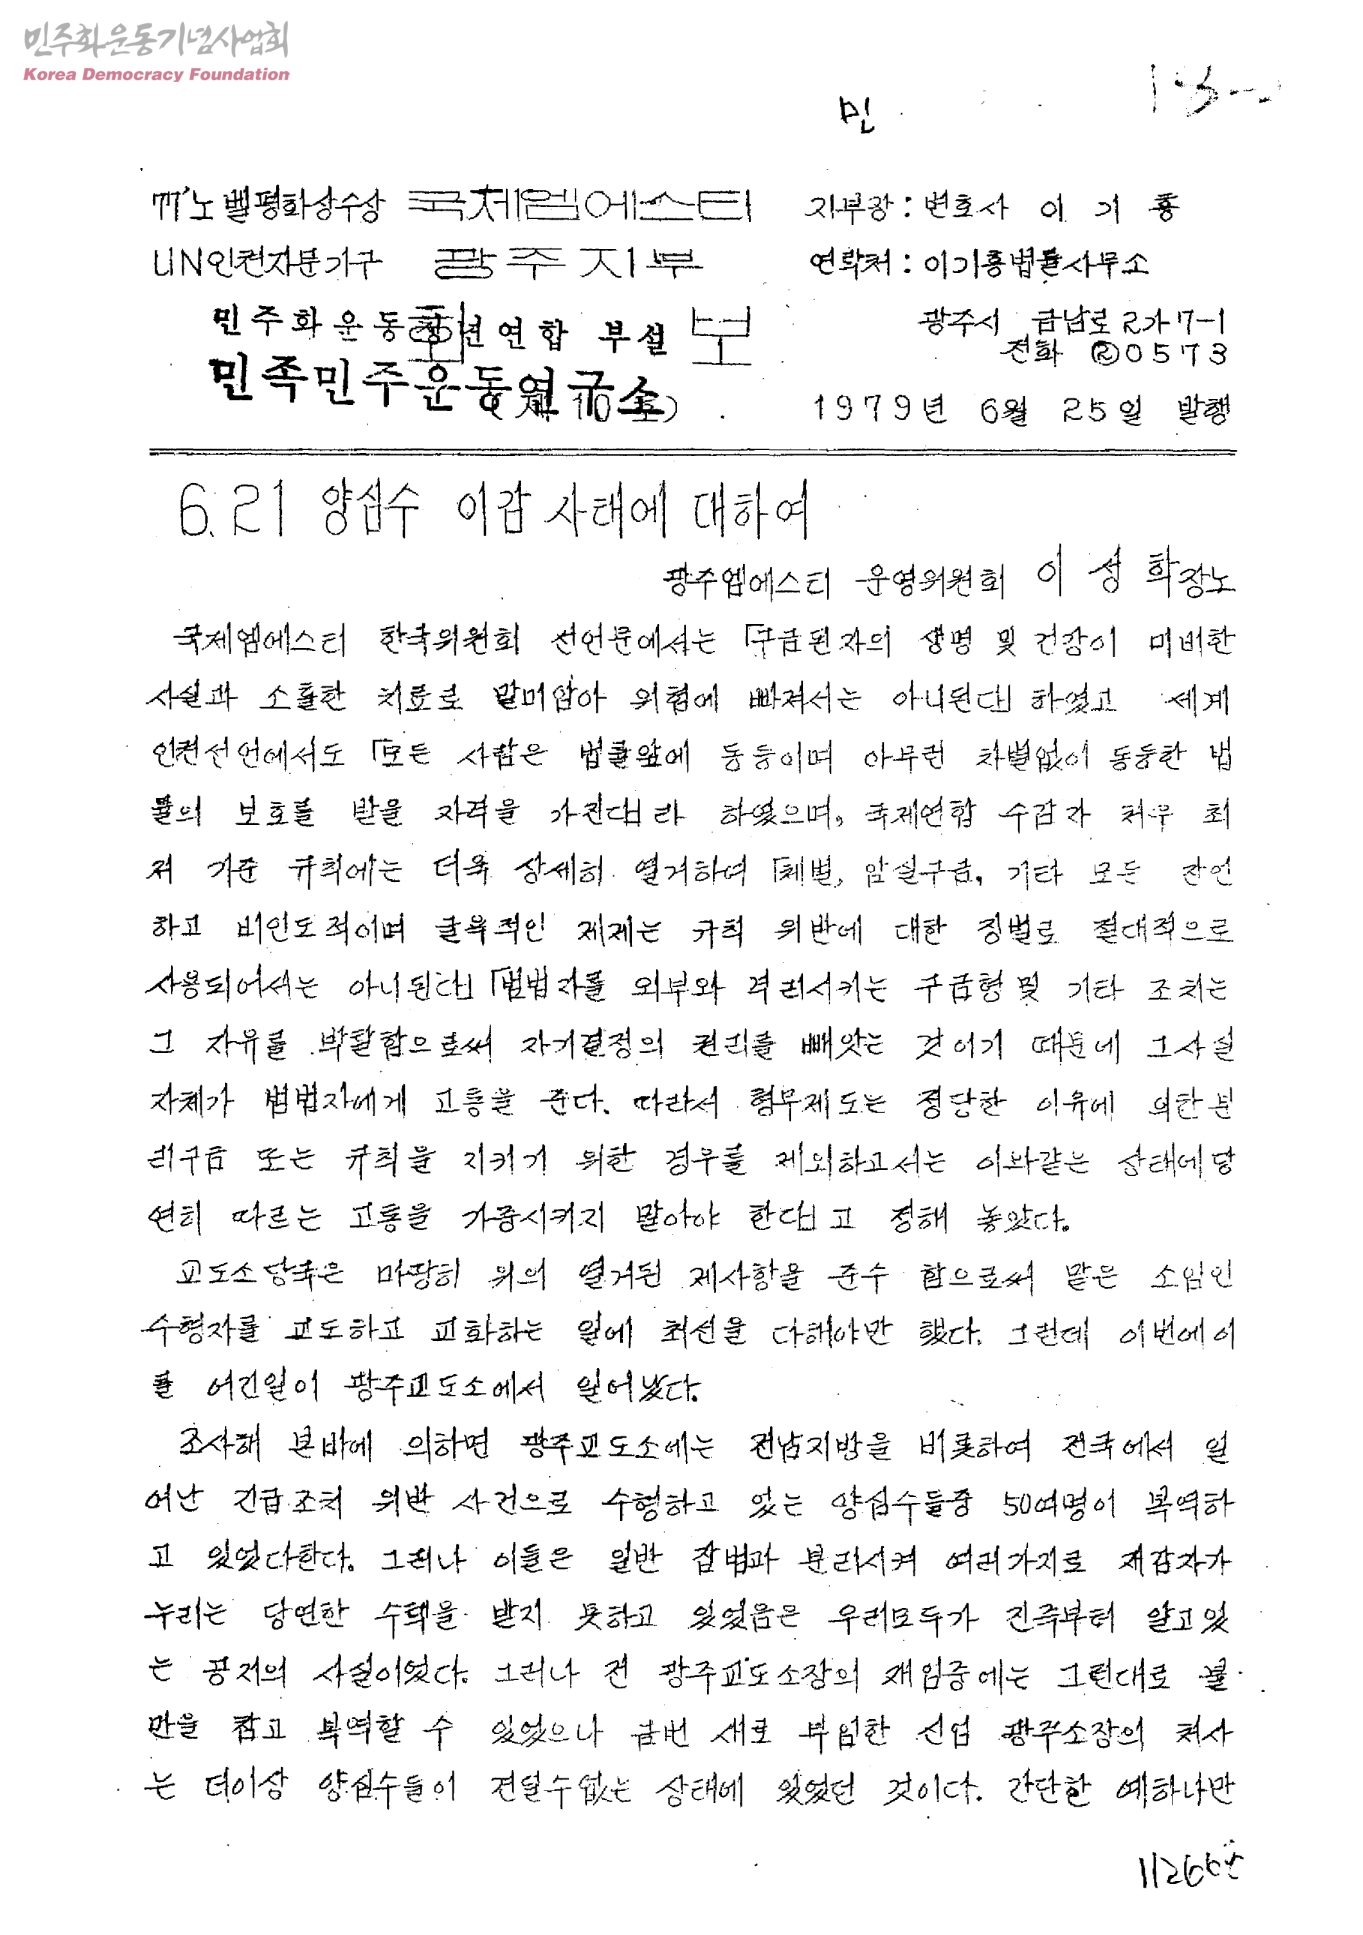 민주화운동기념사업회
Korea Democracy Foundation
민
77'노벨평화상수상 국제엠에스티 지부장 : 변호사 이 기 홍
UN인권자문기구 광주지부 연락처 : 이기홍법률사무소
민주화운동청년연합 부설 보 광주시 금남로 2가 7-1
전화 ②0573
민족민주운동연구소 1979년 6월 25일 발행
6.21 양심수 이감 사태에 대하여
광주엠에스티 운영위원회 이 성 학 장노
국제엠에스티 한국위원회 선언문에서는 「구금된자의 생명 및 건강이 미비한
시설과 소홀한 치료로 말미암아 위협에 빠져서는 아니된다」 하였고 세계
인권선언에서도 「모든 사람은 법률앞에 동등이며 아무런 차별없이 동등한 법
률의 보호를 받을 자격을 가진다」라 하였으며, 국제연합 수감자 처우 최
저 기준 규칙에는 더욱 상세히 열거하여 「체벌, 암실구금, 기타 모든 잔인
하고 비인도적이며 굴욕적인 제재는 규칙 위반에 대한 징벌로 절대적으로
사용되어서는 아니된다」 「범법자를 외부와 격리시키는 구금형 및 기타 조치는
그 자유를 박탈함으로써 자기결정의 권리를 빼앗는 것이기 때문에 그사실
자체가 범법자에게 고통을 준다. 따라서 형무제도는 정당한 이유에 의한 분
리구금 또는 규칙을 지키기 위한 경우를 제외하고서는 이와같은 상태에 당
연히 따르는 고통을 가중시키지 말아야 한다」고 정해 놓았다.
교도소당국은 마땅히 위의 열거된 제사항을 준수 함으로써 맡은 소임인
수형자를 교도하고 교화하는 일에 최선을 다해야만 했다. 그런데 이번에 이
를 어긴일이 광주교도소에서 일어났다.
조사해 본바에 의하면 광주교도소에는 전남지방을 비롯하여 전국에서 일
어난 긴급조치 위반 사건으로 수형하고 있는 양심수들중 50여명이 복역하
고 있었다한다. 그러나 이들은 일반 잡범과 분리시켜 여러가지로 재감자가
누리는 당연한 수혜을 받지 못하고 있었음은 우리모두가 진즉부터 알고있
는 공지의 사실이었다. 그러나 전 광주교도소장의 재임중에는 그런대로 불
만을 참고 복역할 수 있었으나 금번 새로 부임한 신임 광주소장의 처사
는 더이상 양심수들이 견딜수없는 상태에 있었던 것이다. 간단한 예하나만